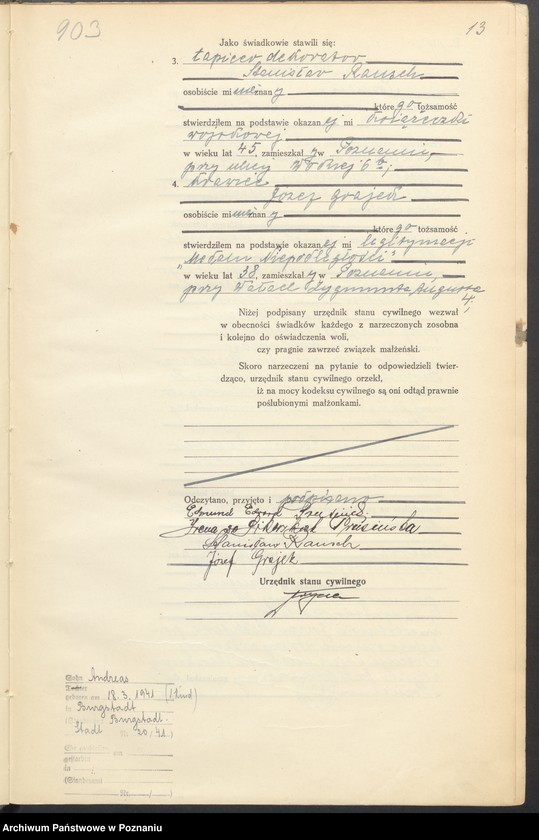 903
13
Jako świadkowie stawili się:
3. tapicer dekorator
Stanisław Rausch
osobiście mi nieznany
którego tożsamość
stwierdziłem na podstawie okazanej mi książeczki
wojskowej
w wieku lat 45, zamieszkały w Poznaniu,
przy ulicy 6
4. krawiec
Józef Grajek
osobiście mi nieznany
którego tożsamość
stwierdziłem na podstawie okazanej mi legitymacji
"Medalu Niepodległości"
w wieku lat 38, zamieszkały w Poznaniu,
przy Wałach Zygmunta Augusta
4;
Niżej podpisany urzędnik stanu cywilnego wezwał
w obecności świadków każdego z narzeczonych zosobna
i kolejno do oświadczenia woli,
czy pragnie zawrzeć związek małżeński.
Skoro narzeczeni na pytanie to odpowiedzieli twier-
dząco, urzędnik stanu cywilnego orzekł,
iż na mocy kodeksu cywilnego są oni odtąd prawnie
poślubionymi małżonkami.
Odczytano, przyjęto i podpisano
Edmund
Irena
Stanisław Rausch
Józef Grajek
Urzędnik stanu cywilnego
Sohn Andreas
Tochter
geboren am 18.3.1941 (1. Kind)
in Burgstadt
Burgstadt-
Stadt Nr. 20/41.)
am
in
Nr. /
Archiwum Państwowe w Poznaniu